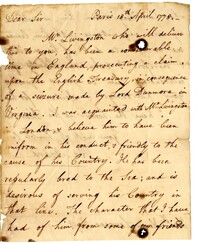 Dear Sir Paris 13th April, 1778.
Mr Livingston who will deliver
this to you, has been a considerable
time in England, prosecuting a claim
upon the English Treasury in consequence
of a seizure made by Lord Dunmore, in
Virginia. I was acquainted with Mr Livingston
in London & believe him to have been
uniform in his conduct, & friendly to the
cause of his Country. He has been
regularly bred to the Sea; and is
desirous of serving his Country in
that line. The character that I have
had of him from some of my friends